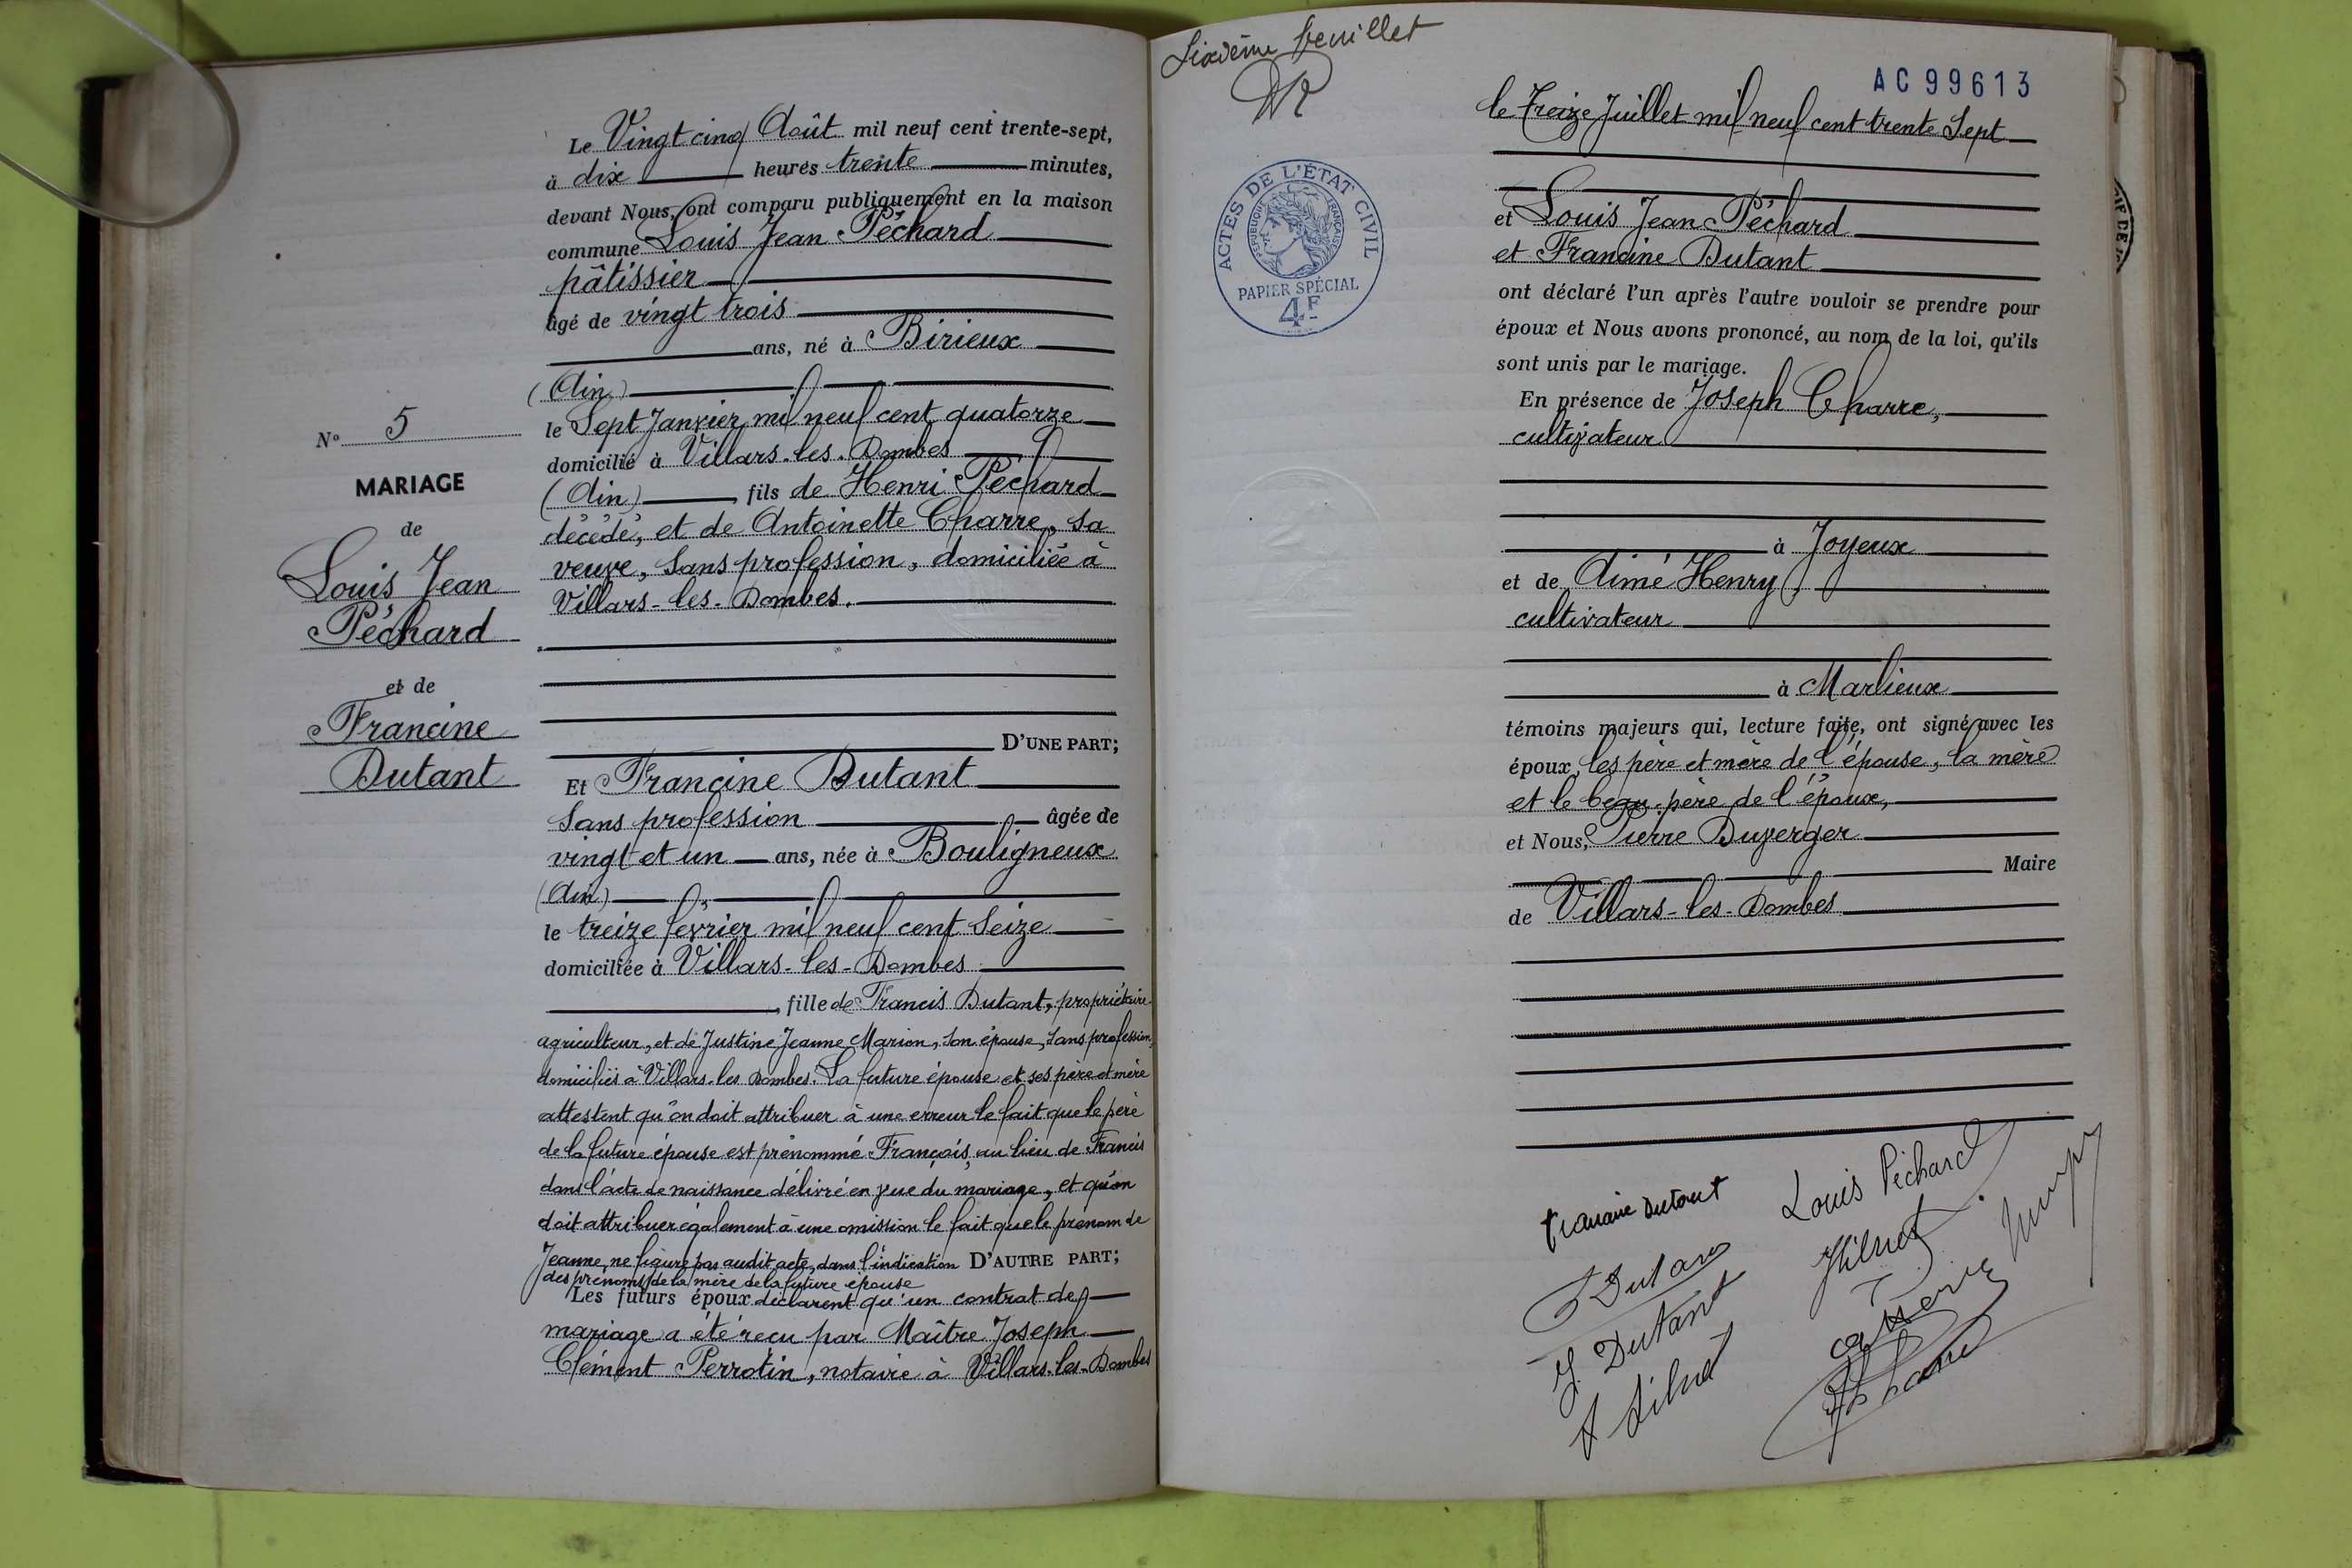 Le Vingt cinq Août mil neuf cent trente-sept,
à dix heures trente minutes,
devant Nous, ont comparu publiquement en la maison
commune Louis Jean Péchard
pâtissier
âgé de vingt trois
ans, né à Birieux
(Ain)
le Sept Janvier mil neuf cent quatorze
domicilié à Villars-les-Dombes
(Ain) fils de Henri Péchard
décédé, et de Antoinette Charre, sa
veuve, sans profession, domiciliée à
Villars-les-Dombes.
D'UNE PART;
Et Francine Dutant
Sans profession âgée de
vingt et un ans, née à Bouligneux
(Ain)
le treize février mil neuf cent seize
domiciliée à Villars-les-Dombes
, fille de Francis Dutant, propriétaire-
agriculteur, et de Justine Jeanne Marion, son épouse, sans profession,
domiciliés à Villars-les-Dombes. La future épouse et ses père et mère
attestent qu'on doit attribuer à une erreur le fait que le père
de la future épouse est prénommé François, au lieu de Francis
dans l'acte de naissance délivré en vue du mariage, et qu'on
doit attribuer également à une omission le fait que le prénom de
Jeanne, ne figure pas audit acte, dans l'indication D'AUTRE PART;
des prénoms de la mère de la future épouse
Les futurs époux déclarent qu'un contrat de
mariage a été reçu par Maître Joseph
Clément Perrotin, notaire à Villars-les-Dombes
N° 5
MARIAGE
de
Louis Jean
Péchard
et de
Francine
Dutant
Sixième feuillet
DR
AC 99613
ACTES DE L'ÉTAT CIVIL
RÉPUBLIQUE FRANÇAISE
PAPIER SPÉCIAL
4F
le Treize Juillet mil neuf cent trente Sept
et Louis Jean Péchard
et Francine Dutant
ont déclaré l'un après l'autre vouloir se prendre pour
époux et Nous avons prononcé, au nom de la loi, qu'ils
sont unis par le mariage.
En présence de Joseph Charre,
cultivateur
à Joyeux
et de Aimé Henry,
cultivateur
à Marlieux
témoins majeurs qui, lecture faite, ont signé avec les
époux, les père et mère de l'épouse, la mère
et le beau-père de l'époux,
et Nous, Pierre Duverger
Maire
de Villars-les-Dombes
Francine Dutant
Louis Péchard
F Dutant
J. Dutant